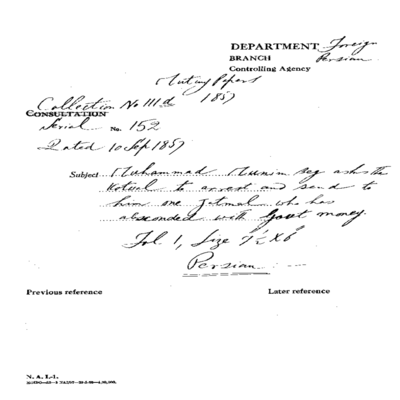 DEPARTMENT Foreign
BRANCH Persian
Controlling Agency
Mutiny Papers
Collection No 111d 1857
CONSULTATION
Serial No. 152
Dated 10 Sep 1857
Subject Muhammad Munim beg asks the
Kotwal to arrest and send to
him one Jatmal who has
absconded with Govt money.
Fol. 1, Size 7½ x 6
Persian
Previous reference Later reference
N. A. I.-1.